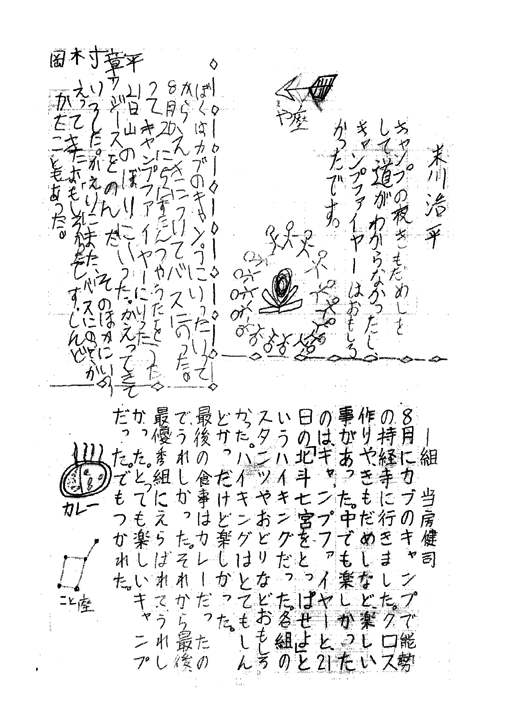 末川浩平
キャンプの夜きもだめしを
して道がわからなかったし
キャンプファイヤーはおもしろ
かったです。
や座
ぼくはカブのキャンプにいった。いって
から
8月20
ってキャンプファイヤーに
21日山のぼりにいった。かえってきて
ジュースをのんだ。そのほかにいろ
いろした。かえりにまたバスにのってか
えってきた。おもしろかったです。しんど
かったこともあった。
岡木寸章平
一組 当房健司
8月にカブのキャンプで能勢
の持経寺に行きました。クロス
作りやきもだめしなど楽しい
事があった。中でも楽しかった
のはキャンプファイヤーと、21
日の「北斗七宮をとっぱせよ」と
いうハイキングだった。各組の
スタンツやおどりなどおもしろ
かった。ハイキングはとてもしん
どかっだけど楽しかった。
最後の食事はカレーだったの
でうれしかった。それから最後、
最優秀組にえらばれてうれし
かった。とっても楽しいキャンプ
だった。でもつかれた。
カレー
こと座